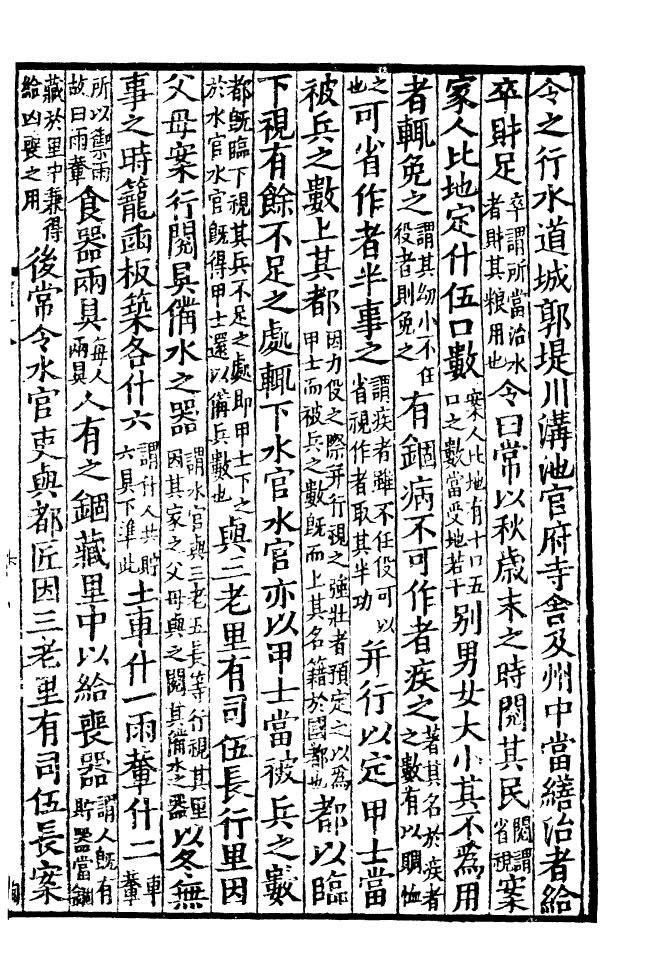 令之行水道城郭堤川溝池官府寺舍及州中當繕治者給
卒財足卒謂所當治水者財其粮用也令曰常以秋歲末之時閱其民閱謂省視案
家人比地定什伍口數案人比地有十口五口之數當受地若干別男女大小其不爲用
者輒免之謂其幼小不任役者則免之有錮病不可作者疾之著其名於疾者之數有以賙恤
之也可省作者半事之謂疾者雖不任役可以省視作者取其半功并行以定甲士當
被兵之數上其都因力役之際并行視之強壯者預定之以爲甲士而被兵之數旣而上其名籍於國都也都以臨
下視有餘不足之處輒下水官水官亦以甲士當被兵之數
都旣臨下視其兵不足之處即甲士下之於水官水官旣得甲士還以備兵數也與三老里有司伍長行里因
父母案行閱具備水之器謂水官與三老五長等行視其里因其家之父母與之閱其備水之器以冬無
事之時籠臿板築各什六謂什人共貯六具下準此土車什一雨輂什二車輂
所以禦雨故曰雨輂食器兩具每人兩具人有之錮藏里中以給喪器謂人旣有貯器當錮
藏於里中兼得給凶喪之用後常令水官吏與都匠因三老里有司伍長案